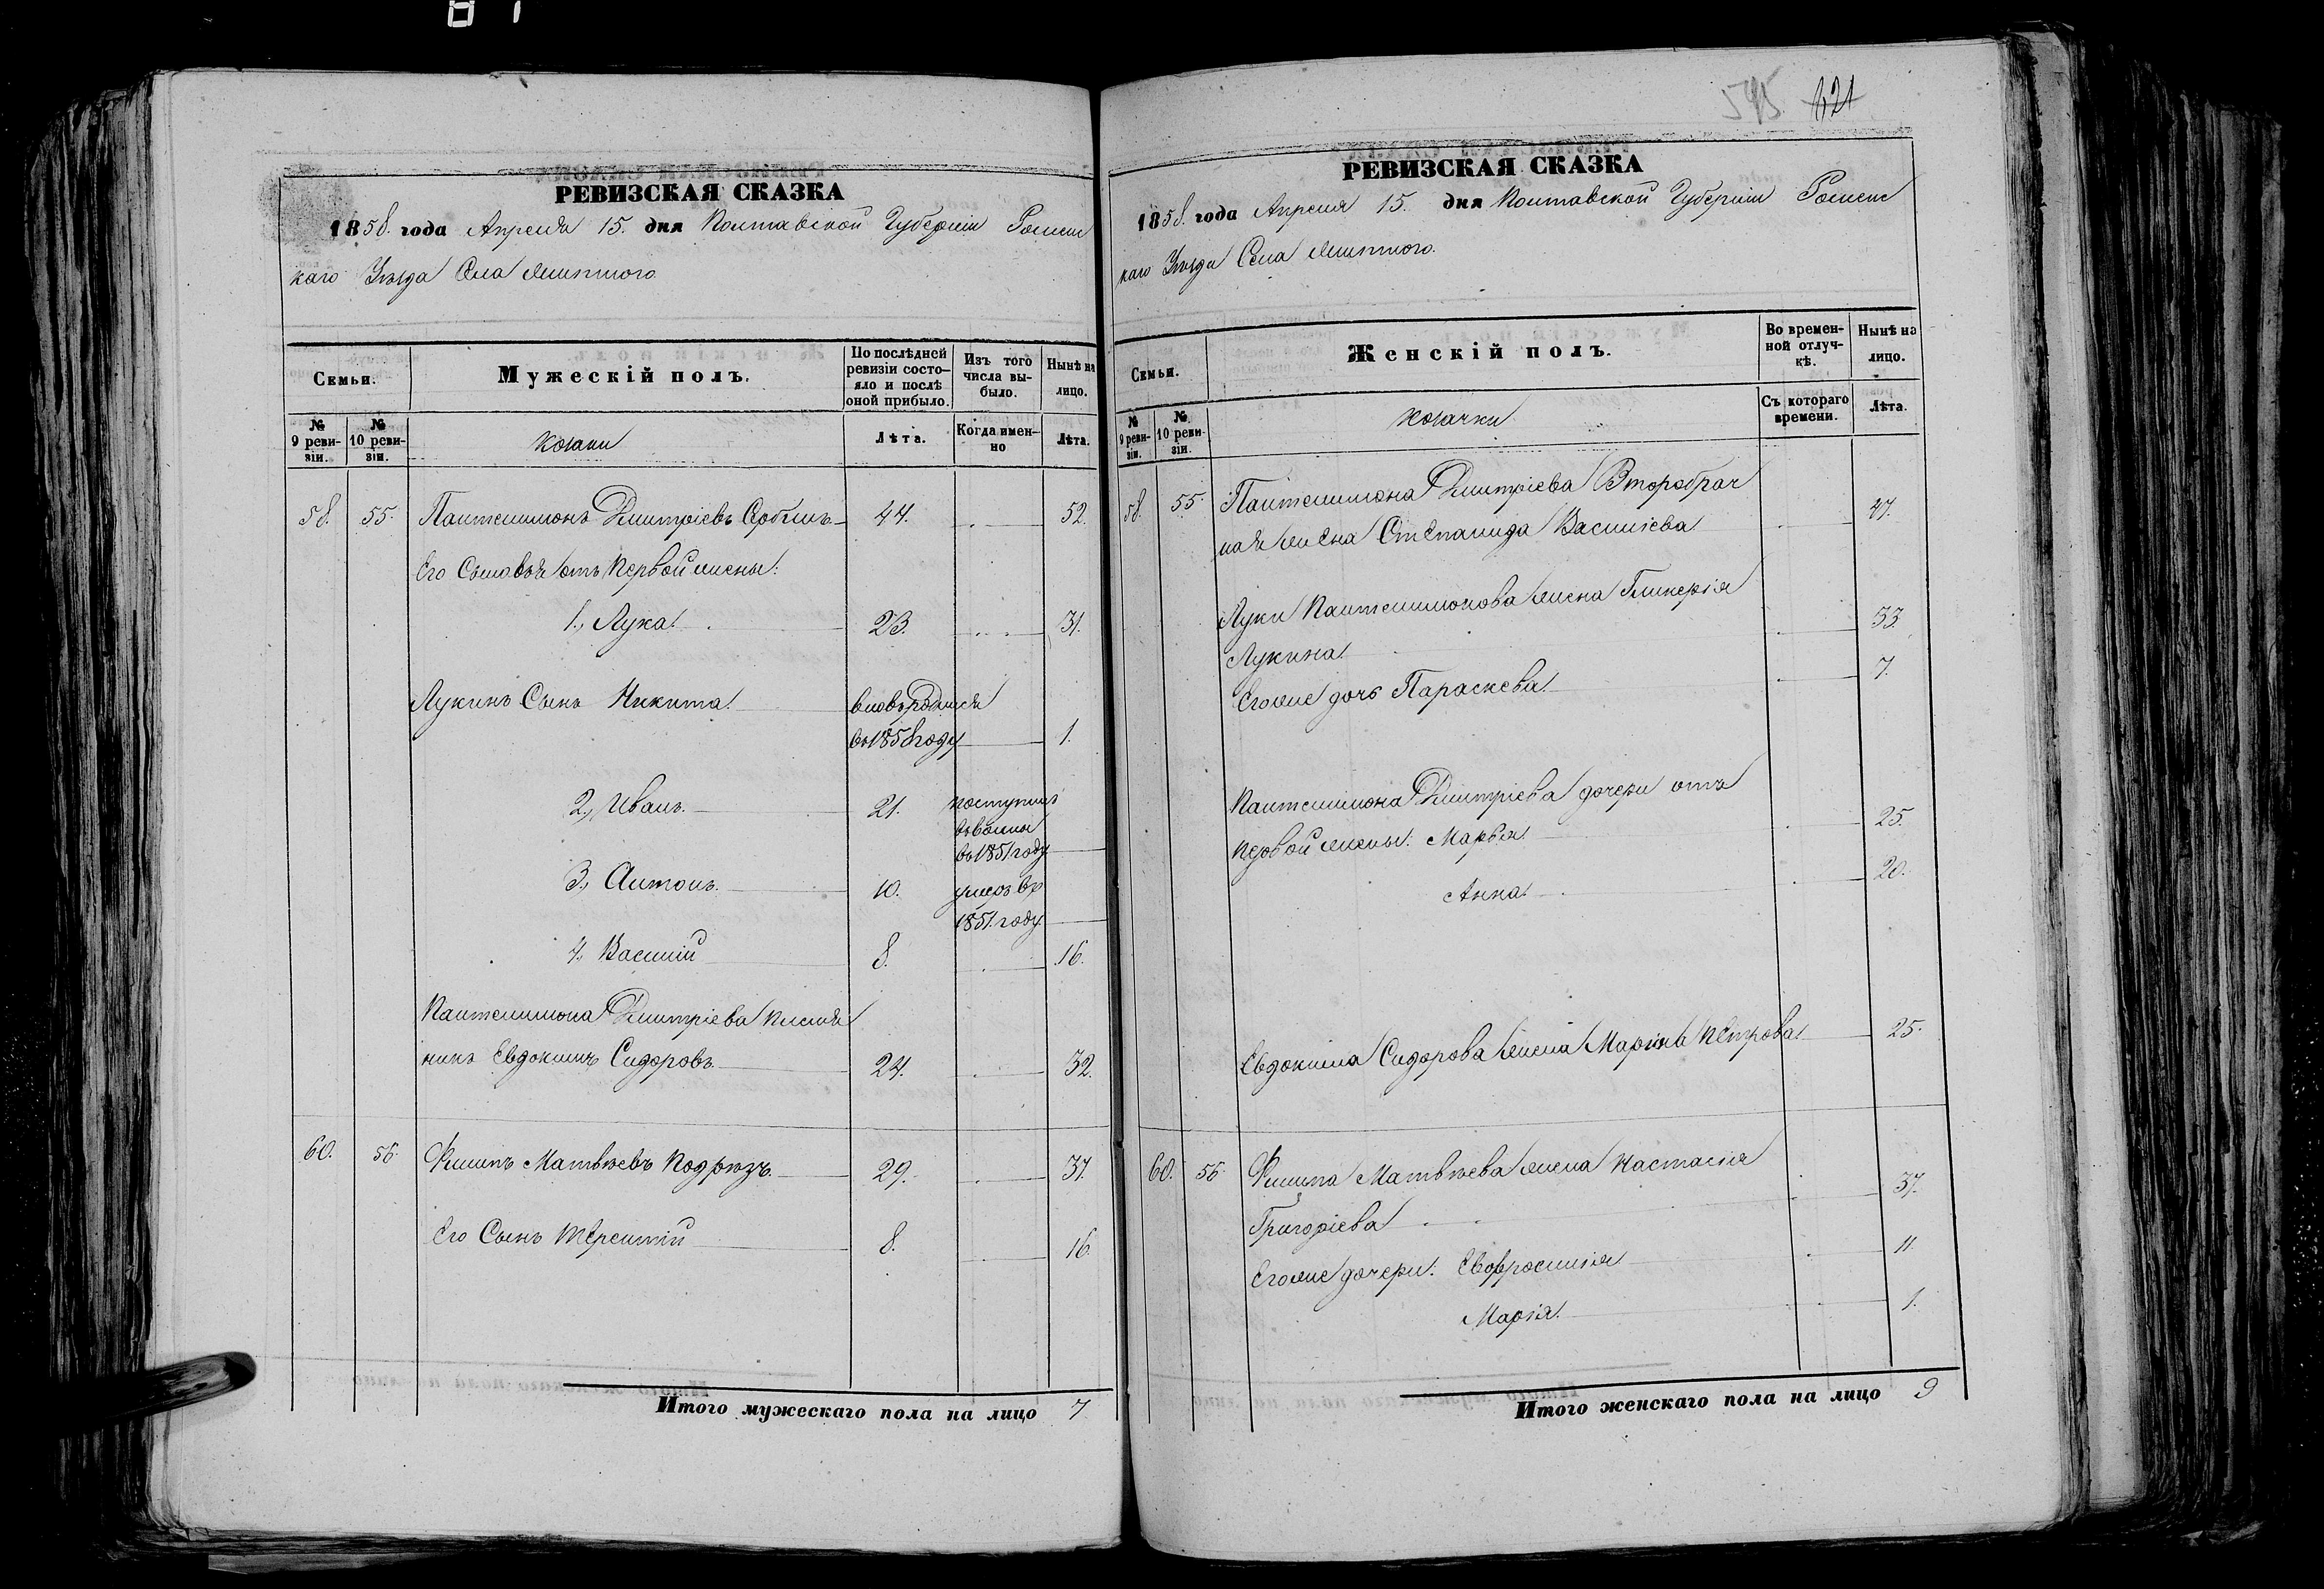 595 621
РЕВИЗСКАЯ СКАЗКА
1858. года Апреля 15. дня Полтавской Губерніи Роменс
каго Уѣзда Села
Семьи.
Мужескій полъ.
По послѣдней ревизіи состо-
яло и послѣ
оной прибыло.
Изъ того
числа вы-
было.
Нынѣ на
лицо.
№
9 реви-
зіи.
№
10 реви-
зіи.
Козаки
Лѣта.
Когда имен-
но
Лѣта.
58. 55. Пантелимонъ Дмитріевъ 44. 52.
Его Сыновья отъ первой жены:
1., Лука. 23. 31.
Лукинъ Сынъ Никита вновь родился
въ 1858 году 1.
2., Иванъ. 21. поступилъ
въ
въ 1851 году
3., Антонъ. 10. умеръ въ
1851. году
4., Василій 8. 16.
Пантелимона Дмитріева племян
никъ Евдокимъ Сидоровъ 24. 32.
60. 56. Филипъ Матвѣевъ 29. 37.
Его Сынъ Терентій 8. 16.
Итого мужескаго пола на лицо 7
РЕВИЗСКАЯ СКАЗКА
1858. года Апреля 15. дня Полтавской Губерніи Роменс
каго Уѣзда Села
Семьи.
Женскій полъ.
Во времен-
ной отлуч-
кѣ.
Нынѣ на
лицо.
№
9 реви-
зіи.
№
10 реви-
зіи.
Козачки
Съ котораго
времени.
Лѣта.
58. 55. Пантелимона Дмитріева Второбрач
ная жена Степанида Василіева 47.
Луки Пантелимонова жена Гликерія
Лукина 33.
Его же дочь Параскева 7.
Пантелимона Дмитріева дочери отъ
первой жены: Марья 25.
Анна 20.
Евдокима Сидорова жена Марія Петрова 25.
60. 56. Филипа Матвѣева жена Настасія
Григоріева 37.
Его же дочери: Евфросинія 11.
Марія. 1.
Итого женскаго пола на лицо 9